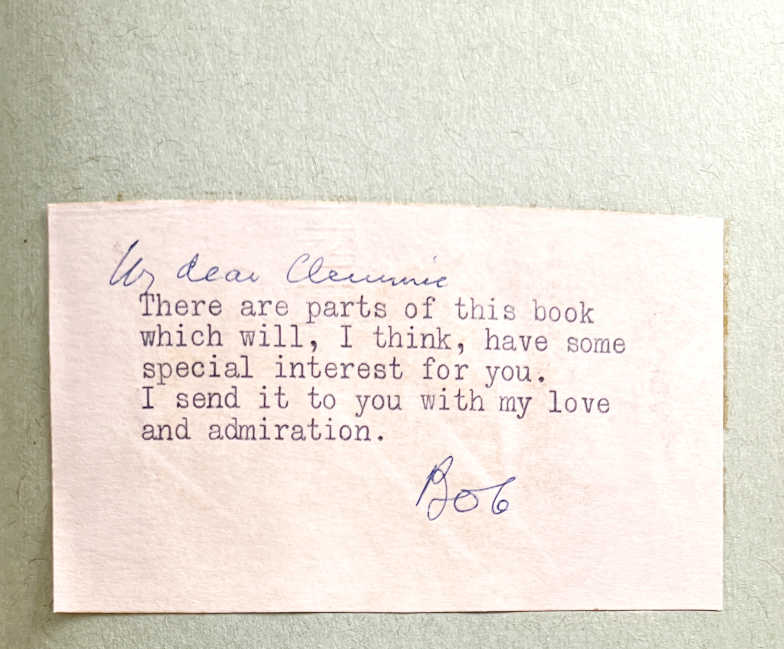 My dear Clemmie
There are parts of this book
which will, I think, have some
special interest for you.
I send it to you with my love
and admiration.
Bob